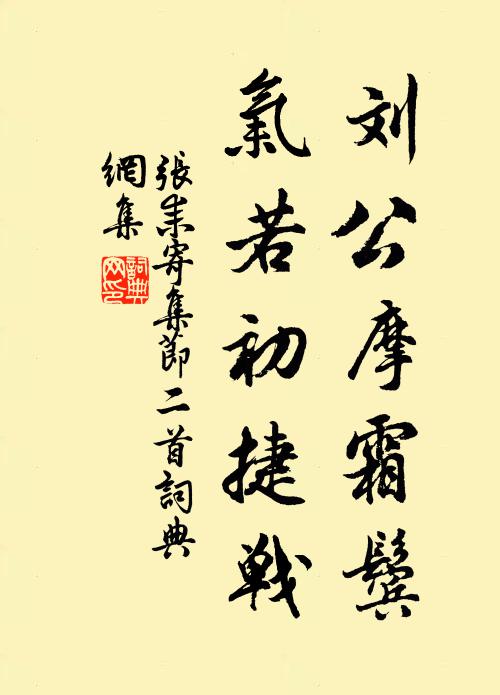 刘公摩霜鬓
氣若初捷戦
張耒寄集莭二首詞典
網集
詞典
网印